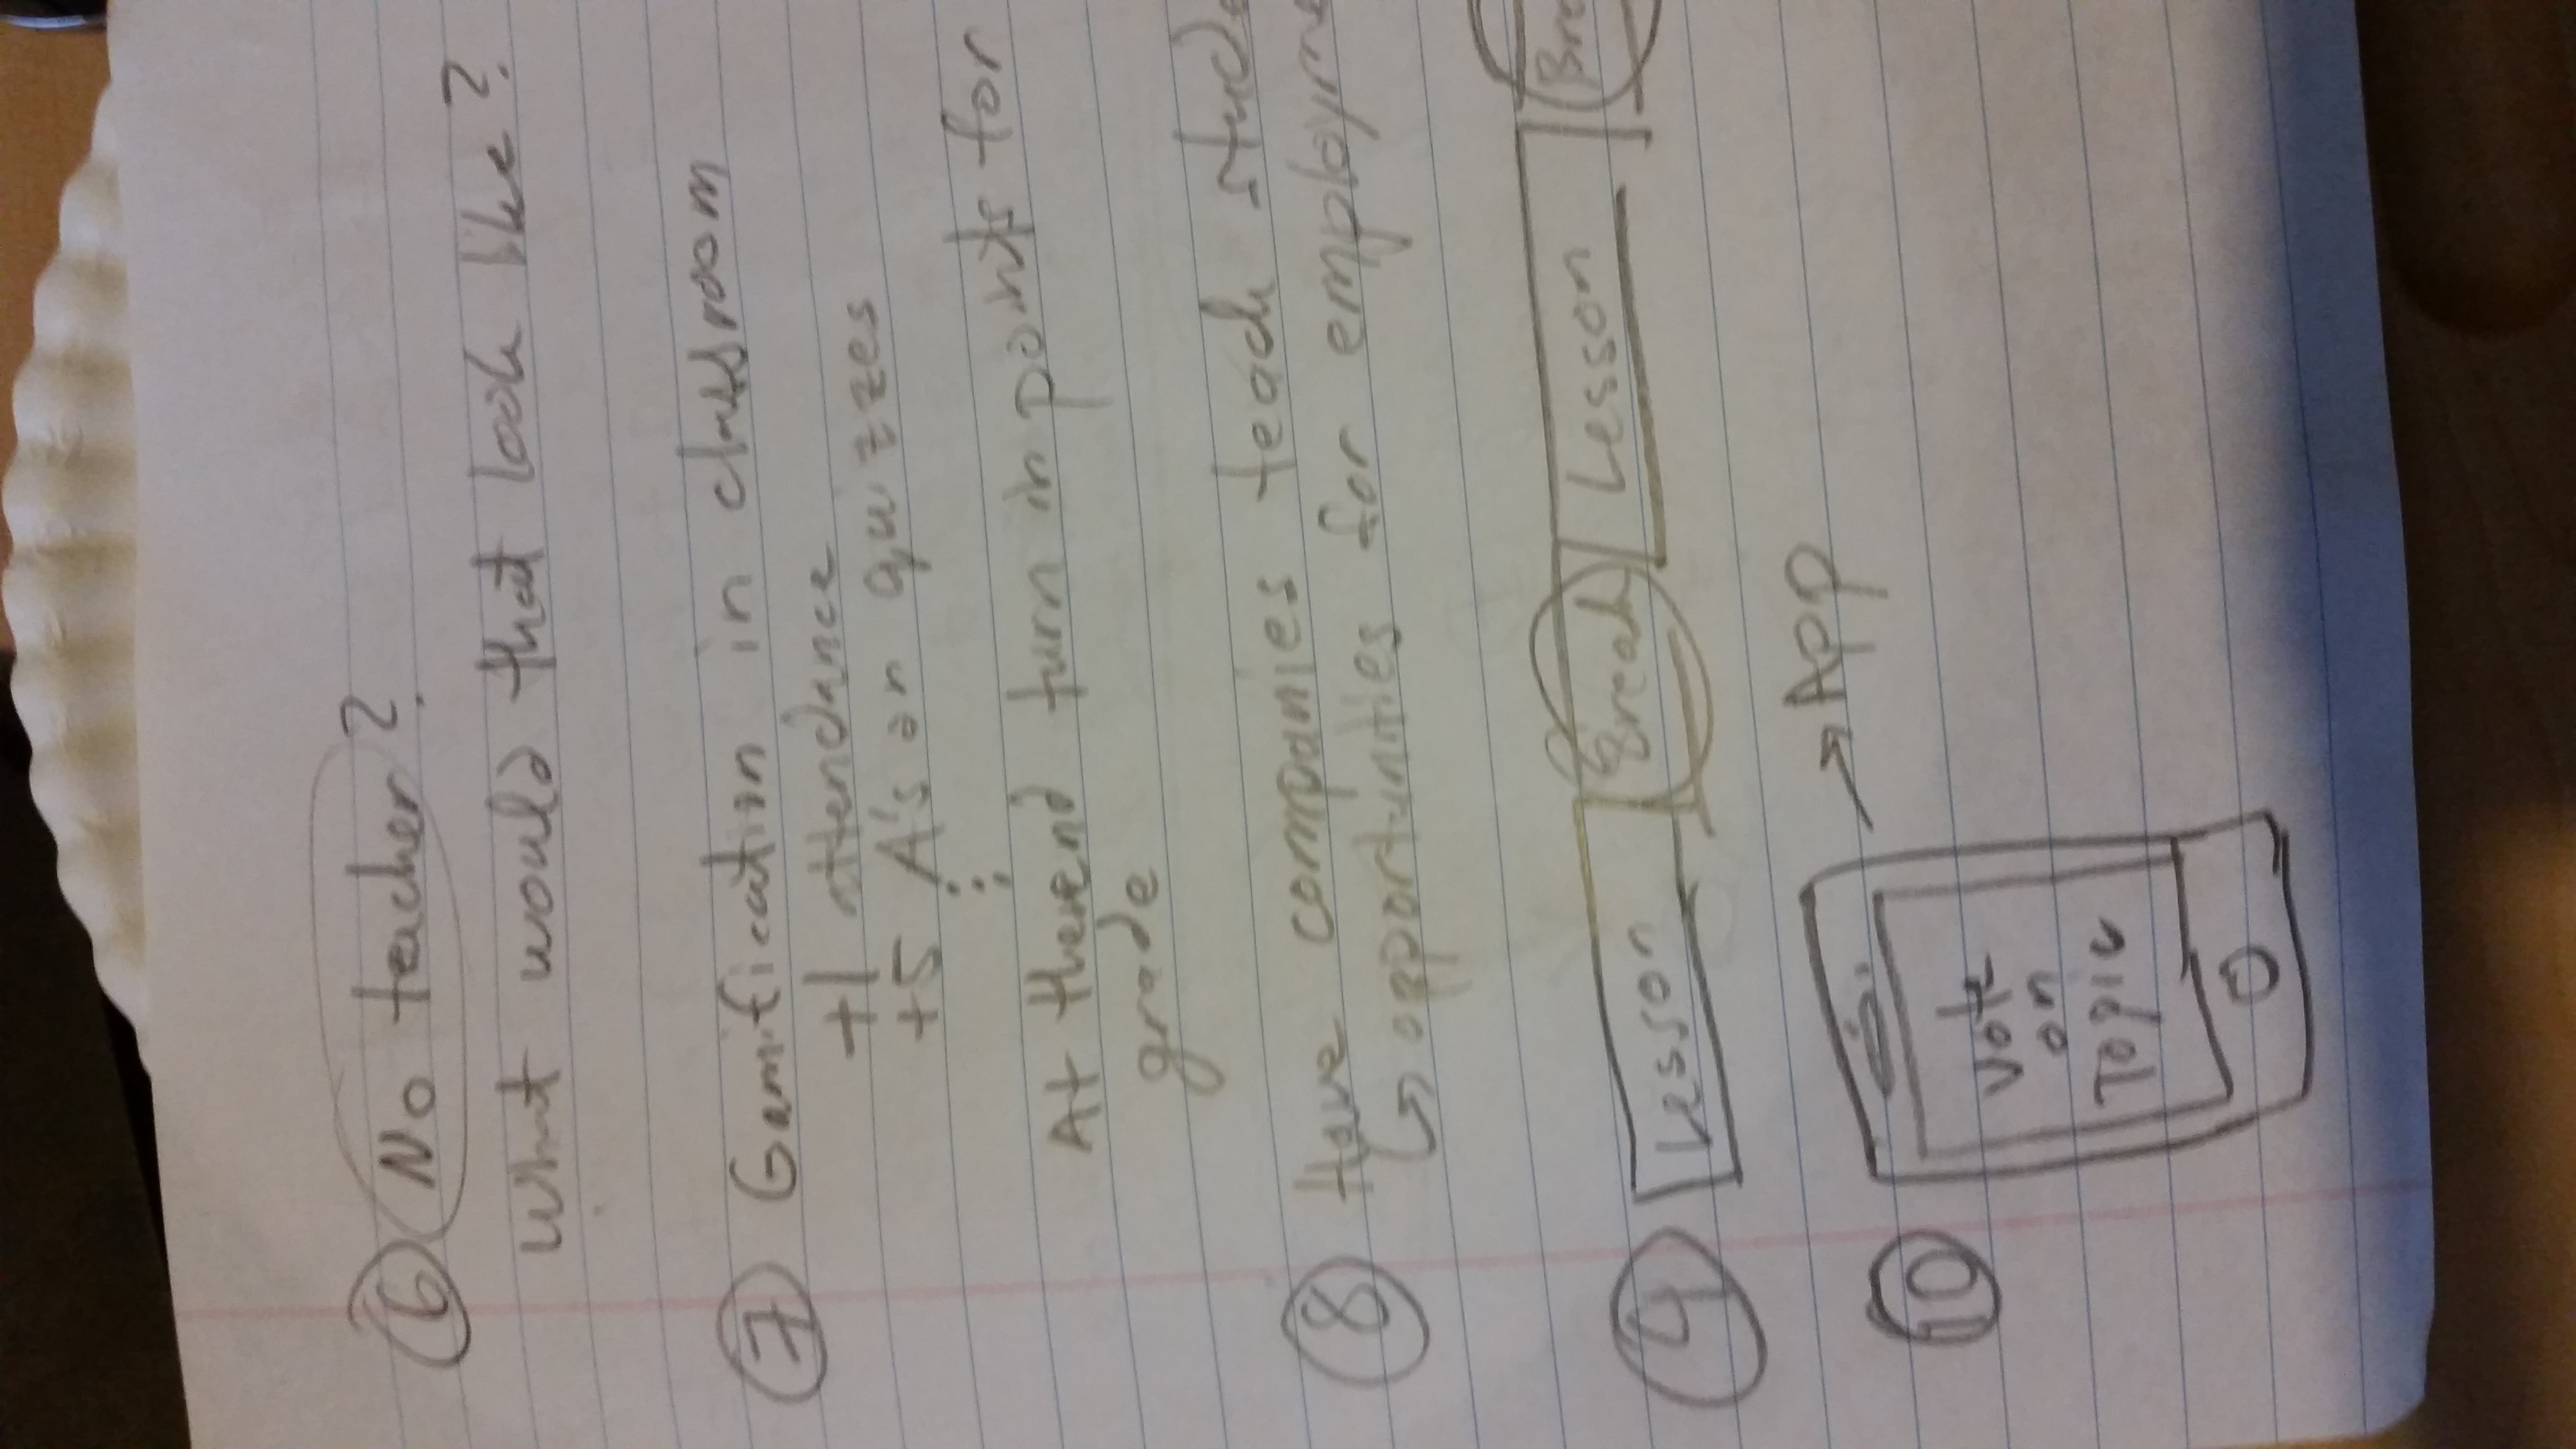 6 No teacher?
What would that look like?
7 Gamification in classroom
+1 attendance
+5 A's on quizzes
At the end turn in points for
grade
8 Have companies teach stude
↳ opportunities for employme
9 Lesson Break Lesson Bre
→ App
10
Vote
on
Topic